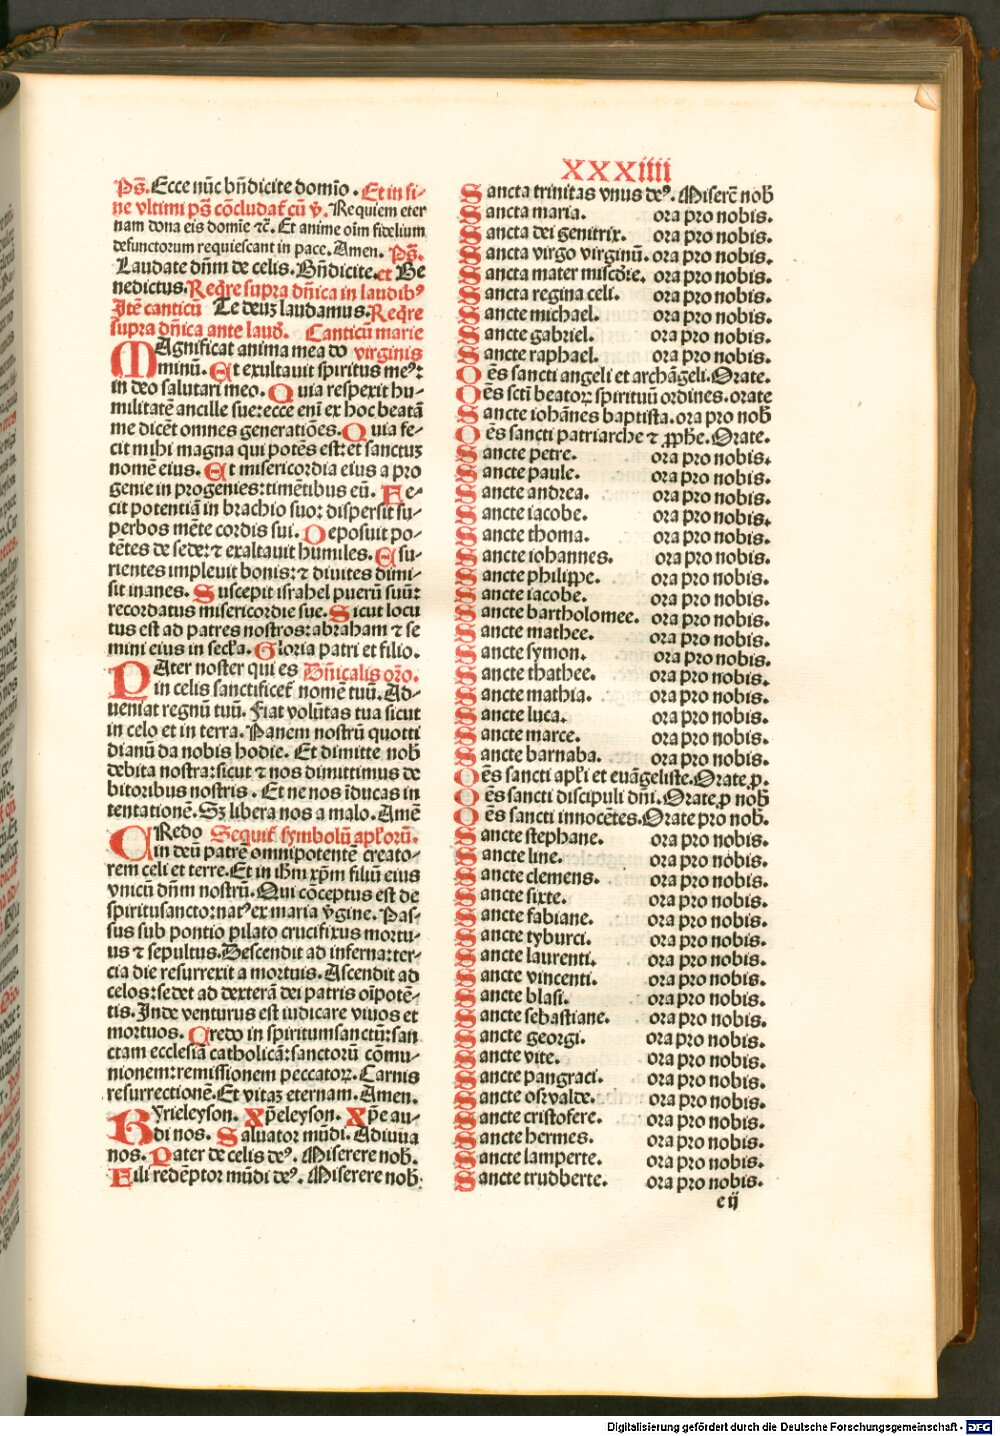 XXXiiii
Ps̄. Ecce nūc bn̄dicite domīo. Et in fi-
ne vltimi ps̄ cōcludat᷑ cū v̄. Requiem eter
nam dona eis domīe ⁊c̄. Et anime oīm fidelium
defunctorum requiescant in pace. Amen. Ps̄.
Laudate dn̄m de celis. Bn̄dicite. et Be
nedictus. Req̄re supra dn̄ica in laudibꝰ
Itē canticū Te deuꝫ laudamus. Req̄re
supra dn̄ica ante laud̄. Canticū marie
MAgnificat anima mea do virginis
minū. Et exultauit spiritus meꝰ:
in deo salutari meo. Quia respexit hu-
militatē ancille sue: ecce eni᷑ ex hoc beatā
me dicēt omnes generatiōes. Quia fe-
cit mihi magna qui potēs est: et sanctuꝫ
nomē eius. Et misericordia eius a pro
genie in progenies: timētibus eū. Fe-
cit potentiā in brachio suo: dispersit su-
perbos mēte cordis sui. Deposuit po-
tētes de sede: ⁊ exaltauit humiles. Esu-
rientes impleuit bonis: ⁊ diuites dimi-
sit inanes. Suscepit israhel puerū suū:
recordatus misericordie sue. Sicut locu
tus est ad patres nostros: abraham ⁊ se
mini eius in secl̄a. Gloria patri et filio.
PAter noster qui es Dn̄icalis or̄o.
in celis sanctificet᷑ nomē tuū. Ad-
ueniat regnū tuū. Fiat volūtas tua sicut
in celo et in terra. Panem nostrū quotti
dianū da nobis hodie. Et dimitte nob̄
debita nostra: sicut ⁊ nos dimittimus de
bitoribus nostris. Et ne nos īducas in
tentationē. Sꝫ libera nos a malo. Amē
CRedo Sequit᷑ symbolū apl̄orū.
in deū patrē omnipotentē creato-
rem celi et terre. Et in ih̄m xp̄m filiū eius
vnicū dn̄m nostrū. Qui cōceptus est de
spiritusancto: natꝰ ex maria v̄gine. Pas-
sus sub pontio pilato crucifixus mortu-
us ⁊ sepultus. Descendit ad inferna: ter-
cia die resurrexit a mortuis. Ascendit ad
celos: sedet ad dexterā dei patris oīpotē-
tis. Inde venturus est iudicare viuos et
mortuos. Credo in spiritumsanctū: san
ctam ecclesiā catholicā: sanctorū cōmu-
nionem: remissionem peccatoꝝ. Carnis
resurrectionē. Et vitaꝫ eternam. Amen.
KYrieleyson. Xp̄eleyson. Xp̄e au-
di nos. Saluator mūdi. Adiuua
nos. Pater de celis deꝰ. Miserere nob̄.
Fili redēptor mūdi deꝰ. Miserere nob̄
Sancta trinitas vnus deꝰ. Miserē nob̄
Sancta maria. ora pro nobis.
Sancta dei genitrix. ora pro nobis.
Sancta virgo virginū. ora pro nobis.
Sancta mater mis̄cdie. ora pro nobis.
Sancta regina celi. ora pro nobis.
Sancte michael. ora pro nobis.
Sancte gabriel. ora pro nobis.
Sancte raphael. ora pro nobis.
Oēs sancti angeli et archāgeli. Orate.
Oēs sctī beatoꝝ spirituū ordines. orate
Sancte iohānes baptista. ora pro nob̄
Oēs sancti patriarche ⁊ ꝓph̄e. Orate.
Sancte petre. ora pro nobis.
Sancte paule. ora pro nobis.
Sancte andrea. ora pro nobis.
Sancte iacobe. ora pro nobis.
Sancte thoma. ora pro nobis.
Sancte iohannes. ora pro nobis.
Sancte philippe. ora pro nobis.
Sancte iacobe. ora pro nobis.
Sancte bartholomee. ora pro nobis.
Sancte mathee. ora pro nobis.
Sancte symon. ora pro nobis.
Sancte thathee. ora pro nobis.
Sancte mathia. ora pro nobis.
Sancte luca. ora pro nobis.
Sancte marce. ora pro nobis.
Sancte barnaba. ora pro nobis.
Oēs sancti apl̄i et euāgeliste. Orate ꝓ.
Oēs sancti discipuli dn̄i. Orate ꝓ nob̄
Oēs sancti innocētes. Orate pro nob̄.
Sancte stephane. ora pro nobis.
Sancte line. ora pro nobis.
Sancte clemens. ora pro nobis.
Sancte sixte. ora pro nobis.
Sancte fabiane. ora pro nobis.
Sancte tyburci. ora pro nobis.
Sancte laurenti. ora pro nobis.
Sancte vincenti. ora pro nobis.
Sancte blasi. ora pro nobis.
Sancte sebastiane. ora pro nobis.
Sancte georgi. ora pro nobis.
Sancte vite. ora pro nobis.
Sancte pangraci. ora pro nobis.
Sancte oswalde. ora pro nobis.
Sancte cristofere. ora pro nobis.
Sancte hermes. ora pro nobis.
Sancte lamperte. ora pro nobis.
Sancte trudberte. ora pro nobis.
e ij
Digitalisierung gefördert durch die Deutsche Forschungsgemeinschaft - DFG